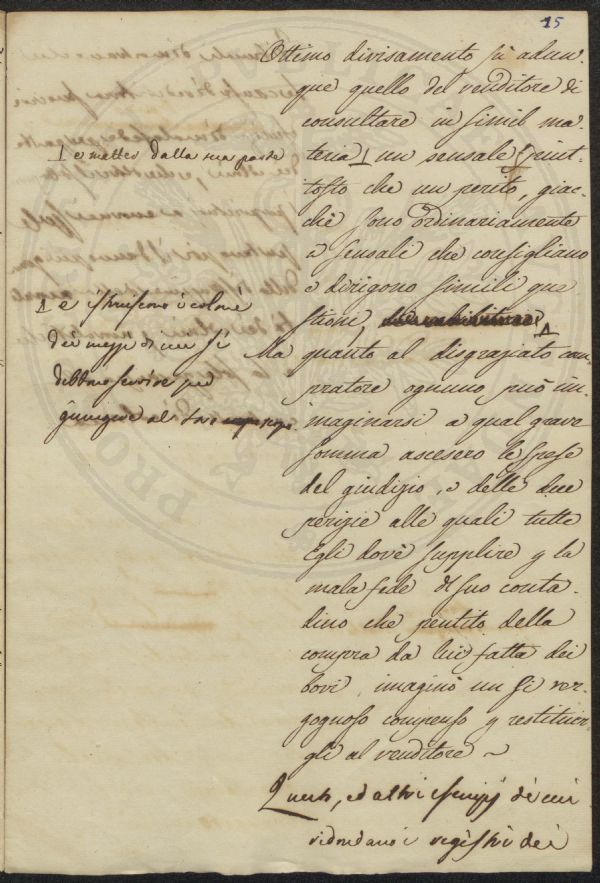 15
Ottimo divisamento fù adun-
que quello del venditore di
consultare in simil ma-
teria | un sensale piut-
tosto che un perito, giac-
chè sono ordinariamente
i sensali che consigliano
e dirigono simili que
stioni,
Ma quanto al disgraziato com-
pratore ognuno può im-
maginarsi a qual grave
somma ascesero le spese
del giudizio, e delle due
perizie alle quali tutte
Egli dovè supplire p la
mala fede del suo conta-
dino che pentito della
compra da lui fatta dei
bovi, imaginò un sì ver-
gognoso compenso p restituir-
gli al venditore ~
Questi, ed altri esempj di cui
ridondano i registri dei
| e matteo dalla sua parte
e istruiscono i coloni
dei mezzi di cui si
debbono servire per
giungere al loro